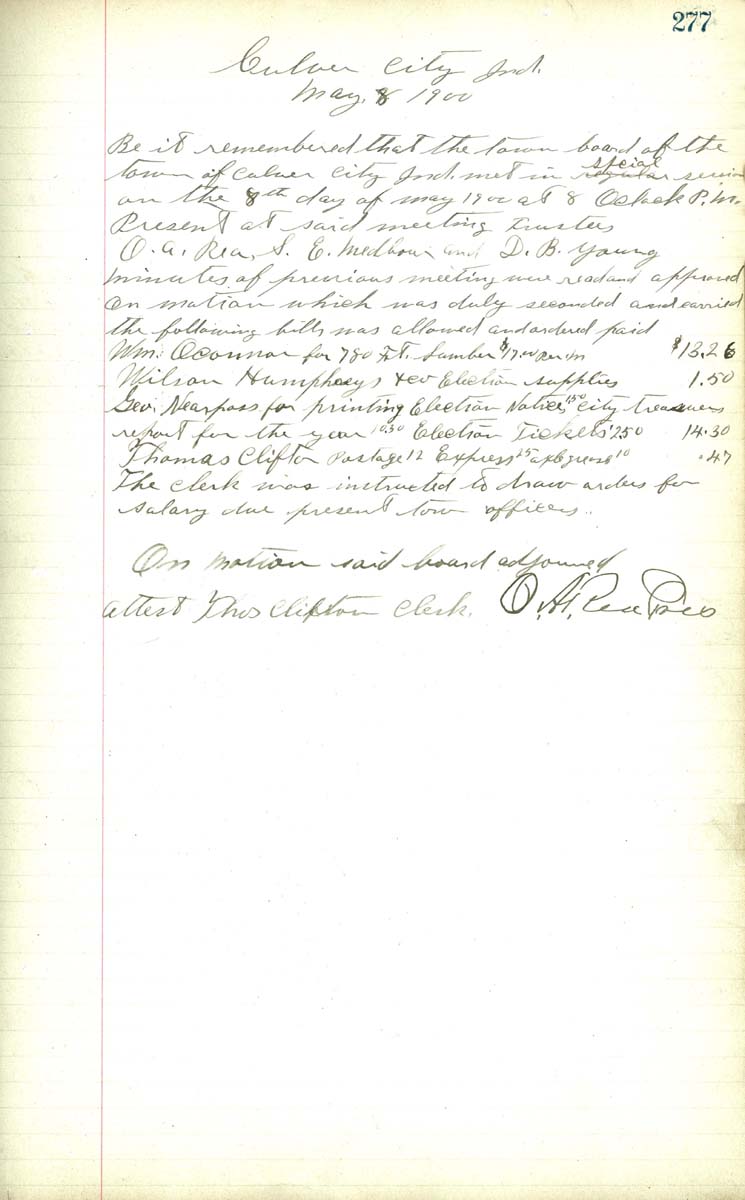 277
Culver City Ind.
May. 8 1900
Be it remembered that the town board of the
town of Culver City Ind. met in spcial regular session
on the 8th day of may 1900 at 8 Oclock P.M.
Present at said meeting Trustees
O. A. Rea, S. E. Medbourn and D. B. Young
minutes of previous meeting were read and approved
On motion which was duly seconded and carried
the following bills was allowed and ordered paid
Wm. Oconnor for 780 Ft. Lumber $17.00 Per m $13.26
Wilson Humphreys & co Election supplies 1.50
Geo. Nearpass for printing Election Notices 1.50 City treasurers
report for the year 10.30 Election Tickets 2.50 14.30
Thomas Clifton Postage 12 Express 25 axle grease 10 .47
The clerk was instructed to draw orders for
salary due present town officers.
On motion said board adjourned
Attest Thos Clifton Clerk. O. A. Rea Pres